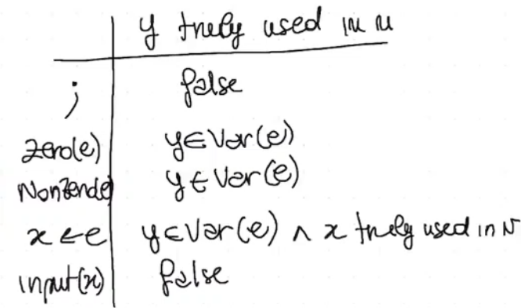 y truely used in u
; false
Zero(e) y∈Var(e)
NonZero(e) y∈Var(e)
x←e y∈Var(e) ∧ x truely used in v
input(x) false